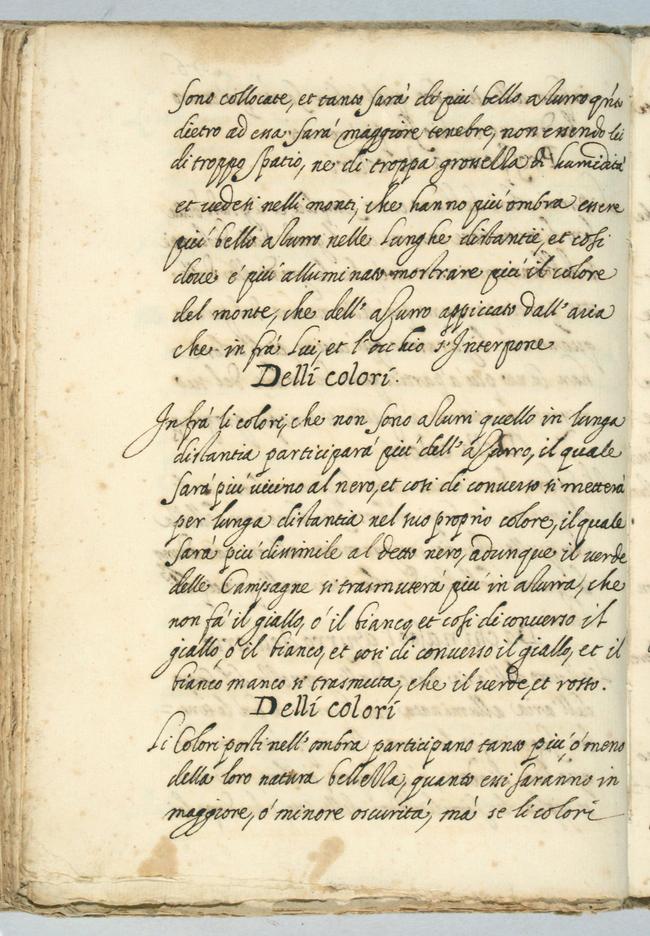 sono collocate, et tanto sarà di più bello azurro qnto
dietro ad essa sarà maggiore tenebre, non essendo lì
di troppo spatio, ne di troppa grossezza di humidità
et vedesi nelli monti, che hanno più ombra essere
più bello azurro nelle lunghe distantie, et così
dove è più alluminato mostrare più il colore
del monte, che dell' azurro appiccato dall' aria
che infrà lui, et l'occhio s'Interpone
Delli colori.
Infrà li colori, che non sono azurri quello in lunga
distantia participarà più dell' azurro, il quale
sarà più vicino al nero, et così di converso si metterà
per lunga distantia nel suo proprio colore, il quale
sarà più dissimile al detto nero, adunque il verde
delle Campagne si trasmuterà più in azurra, che
non fà il giallo, ò il bianco, et così di converso il
giallo ò il bianco, et così di converso il giallo, et il
bianco manco si trasmuta, che il verde, et rosso.
Delli colori
Li Colori posti nell' ombra participano tanto più, ò meno
della loro natura bellezza, quanto essi saranno in
maggiore, ò minore oscurità, mà se li colori